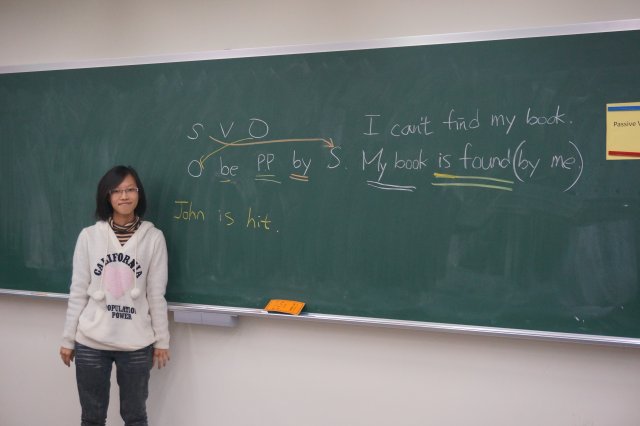 S V O
O be PP by S.
John is hit.
I can't find my book.
My book is found (by me)
Passive
CALIFORNIA
POPULATION
POWER